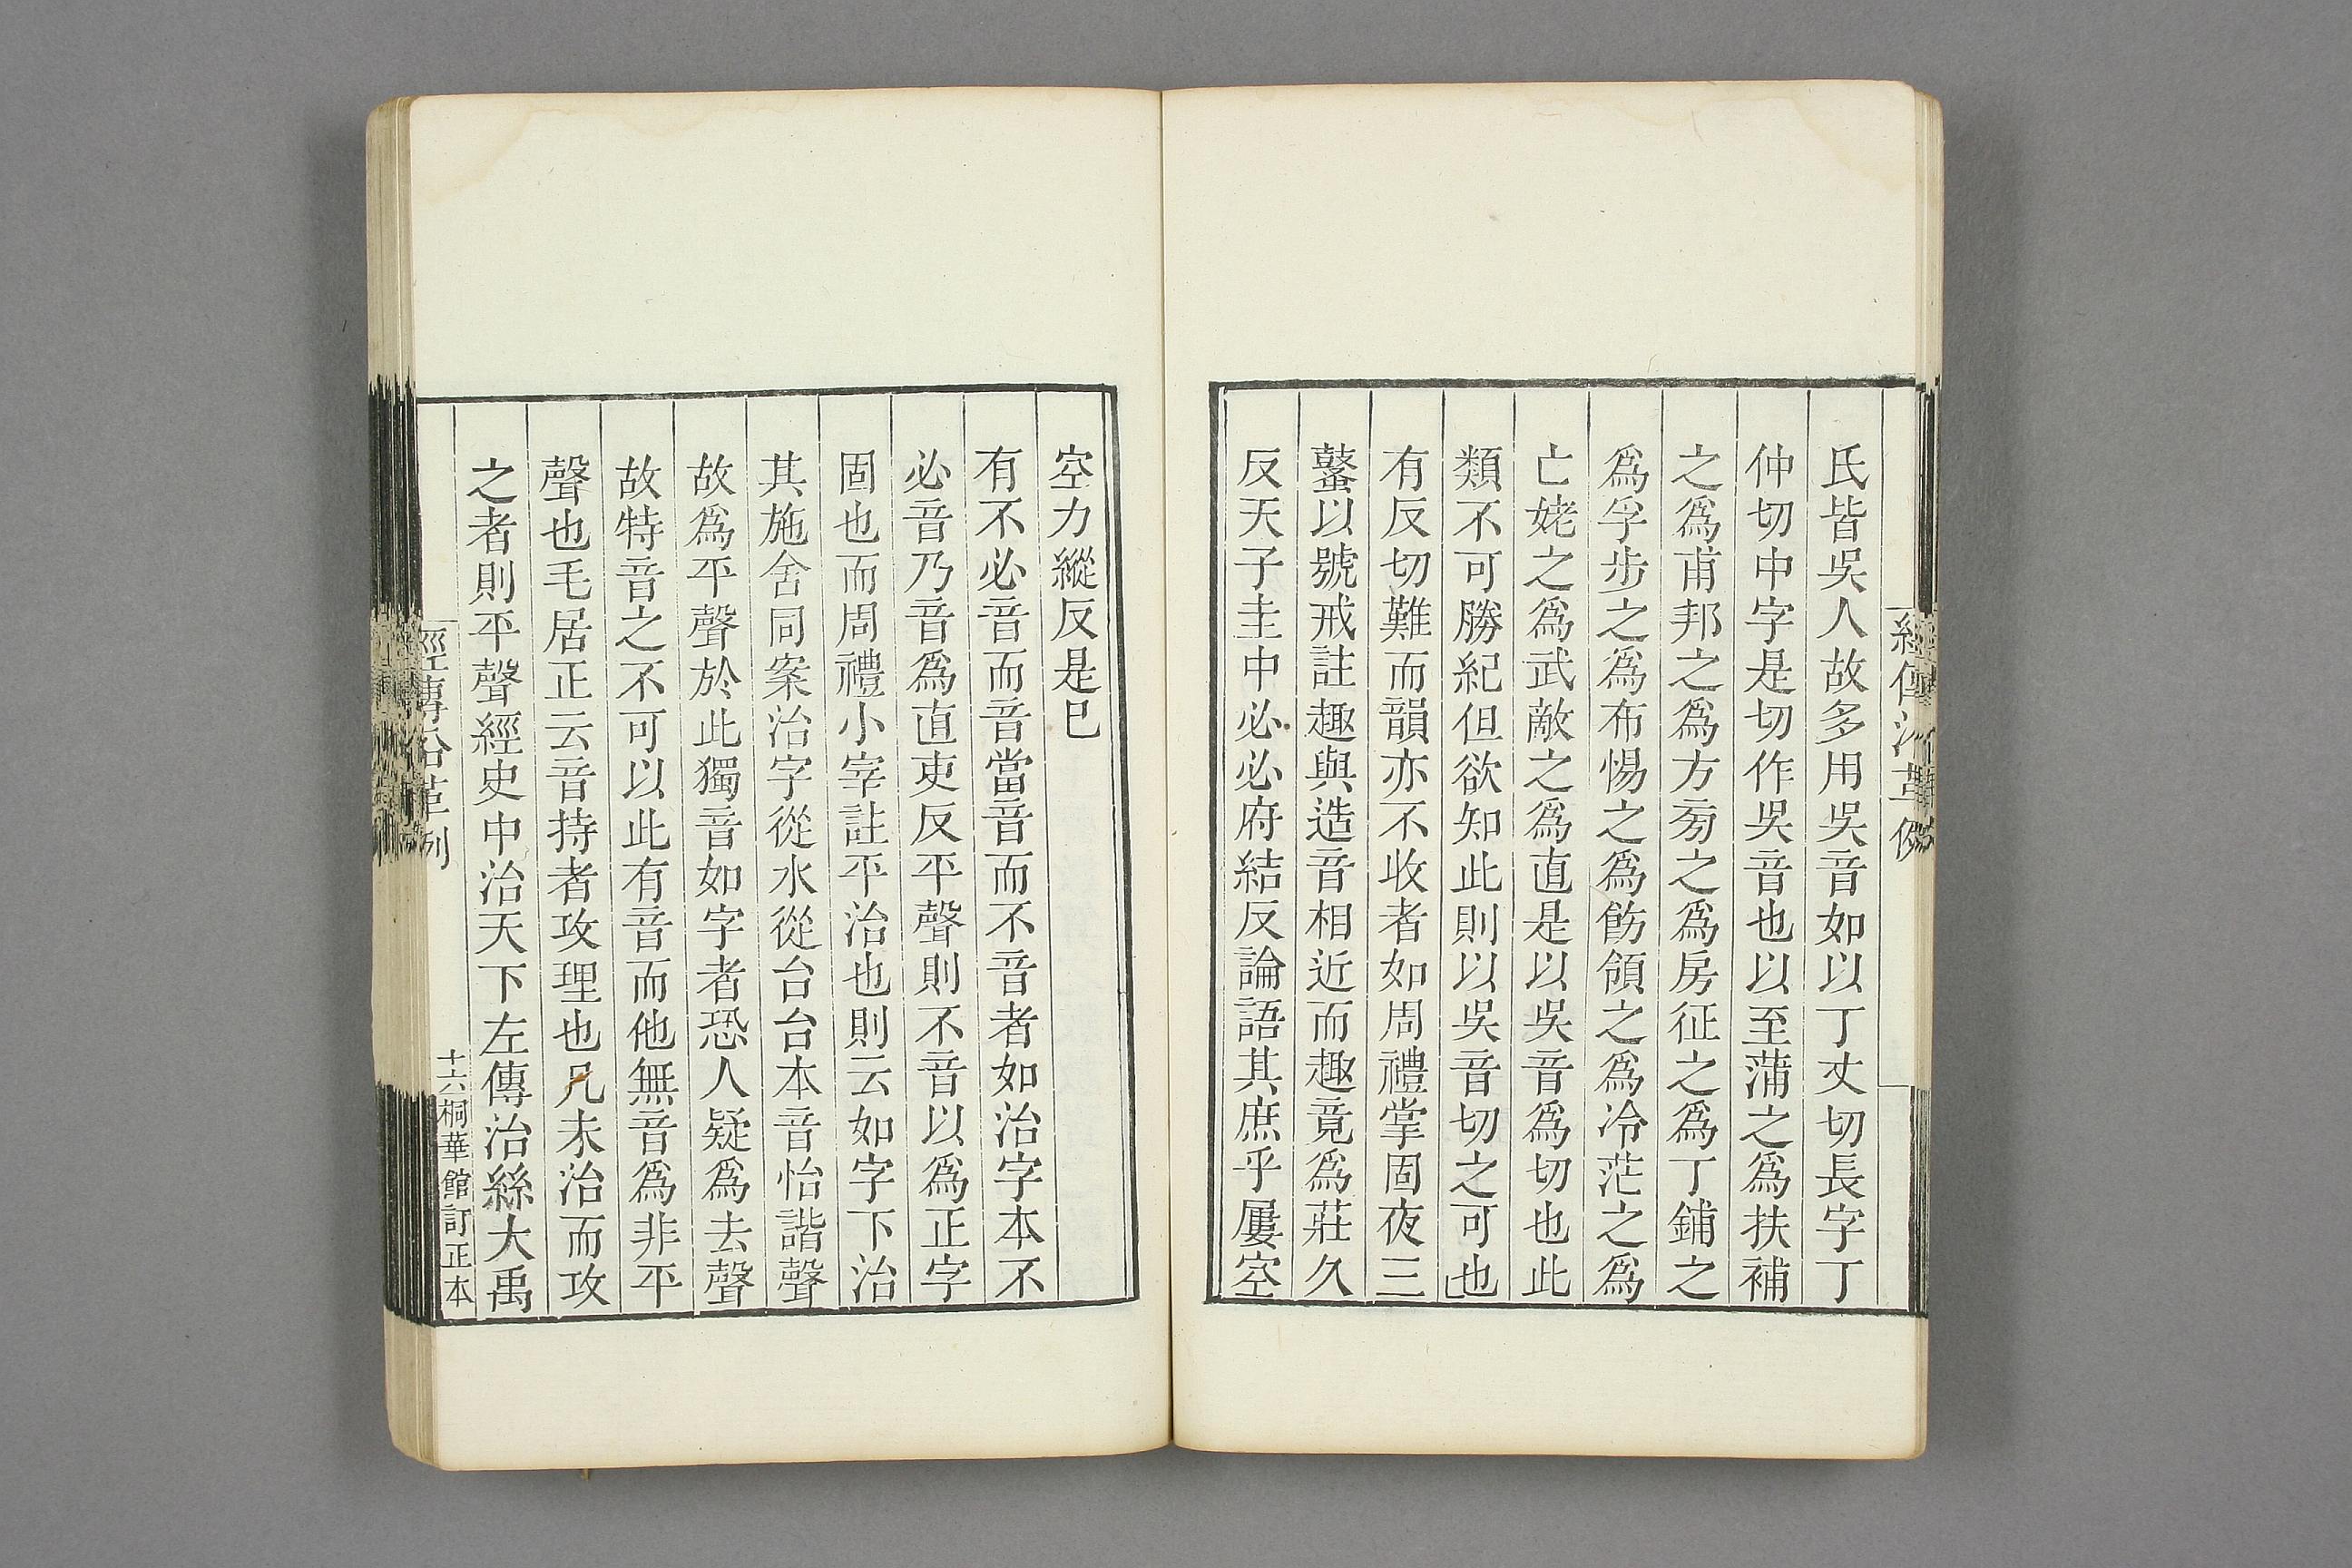 經傳沿革例
氏皆吳人故多用吳音如以丁丈切長字丁
仲切中字是切作吳音也以至蒲之爲扶補
之爲甫邦之爲方旁之爲房征之爲丁鋪之
爲孚步之爲布惕之爲飭領之爲冷茫之爲
亡姥之爲武敵之爲直是以吳音爲切也此
類不可勝紀但欲知此則以吳音切之可也
有反切難而韻亦不收者如周禮掌固夜三
鼜以號戒註趣與造音相近而趣竟爲莊久
反天子圭中必必府結反論語其庶乎屢空
空力縱反是已
有不必音而音當音而不音者如治字本不
必音乃音爲直吏反平聲則不音以爲正字
固也而周禮小宰註平治也則云如字下治
其施舍同案治字從水從台台本音怡諧聲
故爲平聲於此獨音如字者恐人疑爲去聲
故特音之不可以此有音而他無音爲非平
聲也毛居正云音持者攻理也凡未治而攻
之者則平聲經史中治天下左傳治絲大禹
經傳沿革例
十六
桐華館訂正本